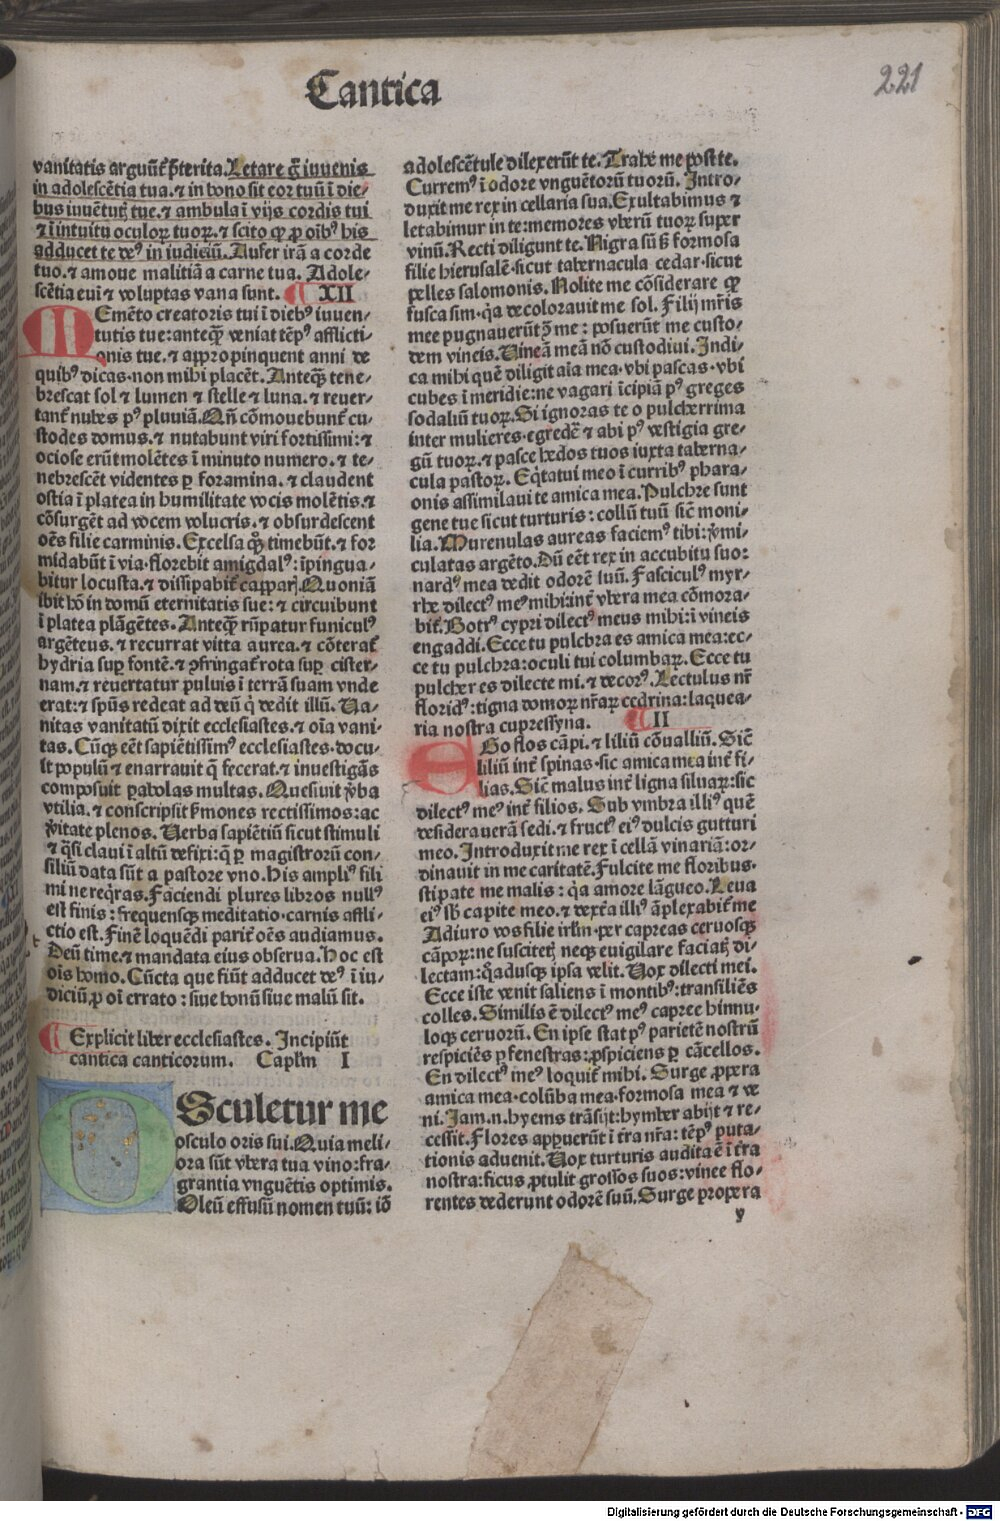 Cantica
221
vanitatis arguūt᷑ p̄terita. Letare g̊ iuuenis
in adolescētia tua. ⁊ in bono sit cor tuū ī die⸗
bus iuuētutꝭ tue. ⁊ ambula ī vijs cordis tui
⁊ ī intuitu oculoꝝ tuoꝝ. ⁊ scito ꝙ ꝓ oībꝰ his
adducet te deꝰ in iudiciū. Aufer irā a corde
tuo. ⁊ amoue malitiā a carne tua. Adole⸗
scētia eui᷑ ⁊ voluptas vana sunt. XII
MEmēto creatoris tui ī diebꝰ iuuen⸗
tutis tue: anteqꝫ̄ veniat tēpꝰ afflicti⸗
onis tue. ⁊ appropinquent anni de
quibꝰ dicas. non mihi placēt. Anteqꝫ̄ tene⸗
brescat sol ⁊ lumen ⁊ stelle ⁊ luna. ⁊ reuer⸗
tant᷑ nubes pꝰ pluuiā. Qn̄ cōmouebunt᷑ cu⸗
stodes domus. ⁊ nutabunt viri fortissimi: ⁊
ociose erūt molētes ī minuto numero. ⁊ te⸗
nebrescēt videntes ꝑ foramina. ⁊ claudent
ostia ī platea in humilitate vocis molētis. ⁊
cōsurgēt ad vocem volucris. ⁊ obsurdescent
oēs filie carminis. Excelsa qꝫ̊ timebūt. ⁊ for
midabūt ī via. florebit amigdalꝰ: īpingua⸗
bitur locusta. ⁊ dissipabit᷑ capparꝭ. Quoniā
ibit hō in domū eternitatis sue: ⁊ circuibunt
ī platea plāgētes. Anteqꝫ̄ rūpatur funiculꝰ
argēteus. ⁊ recurrat vitta aurea. ⁊ cōterat᷑
hydria suꝑ fontē. ⁊ ꝯfringat᷑ rota suꝑ cister⸗
nam. ⁊ reuertatur puluis ī terrā suam vnde
erat: ⁊ spūs redeat ad deū q̇ dedit illū. Ua⸗
nitas vanitatū dixit ecclesiastes. ⁊ oīa vani⸗
tas. Cūqꝫ eēt sapiētissimꝰ ecclesiastes. docu⸗
it populū ⁊ enarrauit q̄ fecerat. ⁊ inuestigās
composuit ꝑabolas multas. Quesiuit v̓ba
vtilia. ⁊ conscripsit s̓mones rectissimos: ac
v̓itate plenos. Uerba sapiētiū sicut stimuli
⁊ q̇si claui ī altū defixi: q̄ ꝑ magistrorū con⸗
siliū data sūt a pastore vno. His ampliꝰ fili
mi ne reqͥras. Faciendi plures libros nullꝰ
est finis: frequensqꝫ meditatio. carnis affli⸗
ctio est. Finē loquēdi parit᷑ oēs audiamus.
Deū time. ⁊ mandata eius obserua. hoc est
oīs homo. Cūcta que fiūt adducet deꝰ ī iu⸗
diciū, ꝓ oī errato: siue bonū siue malū sit.
Explicit liber ecclesiastes. Incipiūt
cantica canticorum. Caplm̄ I
OSculetur me
osculo oris sui. Quia meli⸗
ora sūt vbera tua vino: fra⸗
grantia vnguētis optimis.
Oleū effusū nomen tuū: iō
adolescētule dilexerūt te. Trahe me post te.
Curremꝰ ī odore vnguētorū tuorū. Intro⸗
duxit me rex in cellaria sua. Exultabimus ⁊
letabimur in te: memores vberū tuoꝝ super
vinū. Recti diligunt te. Nigra sū sꝫ formosa
filie hierusalē. sicut tabernacula cedar. sicut
pelles salomonis. Nolite me cōsiderare ꝙ
fusca sim. qͣa decolorauit me sol. Filij mr̄is
mee pugnauerūt ꝯ̄ me: posuerūt me custo⸗
dem vineis. Uineā meā nō custodiui. Indi⸗
ca mihi quē diligit aīa mea. vbi pascas. vbi
cubes ī meridie: ne vagari īcipiā pꝰ greges
sodaliū tuoꝝ. Si ignoras te o pulcherrima
inter mulieres. egredē ⁊ abi pꝰ vestigia gre⸗
gū tuoꝝ. ⁊ pasce hedos tuos iuxta taberna⸗
cula pastoꝝ. Eqͥtatui meo ī curribꝰ phara⸗
onis assimilaui te amica mea. Pulchre sunt
gene tue sicut turturis: collū tuū sic̄ moni⸗
lia. Murenulas aureas faciemꝰ tibi: v̓mi⸗
culatas argēto. Dū eēt rex in accubitu suo:
nardꝰ mea dedit odorē suū. Fasciculꝰ myr⸗
rhe dilectꝰ meꝰ mihi: int᷑ vbera mea cōmora⸗
bit᷑. Botrꝰ cypri dilectꝰ meus mihi: ī vineis
engaddi. Ecce tu pulchra es amica mea: ec⸗
ce tu pulchra: oculi tui columbaꝝ. Ecce tu
pulcher es dilecte mi. ⁊ decorꝰ. Lectulus nr̄
floridꝰ: tigna domoꝝ nr̄aꝝ cedrina: laquea⸗
ria nostra cupressyna. II
EGo flos cāpi. ⁊ liliū cōualliū. Sic̄
liliū int᷑ spinas. sic amica mea int᷑ fi⸗
lias. Sic̄ malus int᷑ ligna siluaꝝ: sic
dilectꝰ meꝰ int᷑ filios. Sub vmbra illiꝰ quē
desideraueram sedi. ⁊ fructꝰ eiꝰ dulcis gutturi
meo. Introduxit me rex ī cellā vinariā: or⸗
dinauit in me caritatē. Fulcite me floribus.
stipate me malis: qͣa amore lāgueo. Leua
eiꝰ sb̄ capite meo. ⁊ dext̓a illiꝰ āplexabit᷑ me
Adiuro vos filie irl̄m. per capreas ceruosqꝫ
cāpoꝝ: ne suscitetꝭ neqꝫ euigilare faciatꝭ di⸗
lectam: qͣadusqꝫ ipsa velit. Uox dilecti mei.
Ecce iste venit saliens ī montibꝰ: transiliēs
colles. Similis ē dilectꝰ meꝰ capree hinnu⸗
loqꝫ ceruorū. En ipse stat pꝰ parietē nostrū
respiciēs ꝑ fenestras: ꝓspiciens ꝑ cācellos.
En dilectꝰ meꝰ loquit᷑ mihi. Surge ꝓpera
amica mea. colūba mea. formosa mea ⁊ ve
ni. Jam.n. hyems trāsijt: hymber abijt ⁊ re⸗
cessit. Flores apparuerūt ī t̓ra nr̄a: tēpꝰ puta⸗
tionis aduenit. Uox turturis audita ē ī t̓ra
nostra: ficus ꝓtulit grossos suos: vinee flo⸗
rentes dederunt odorē suū. Surge propera
y
Digitalisierung gefördert durch die Deutsche Forschungsgemeinschaft - DFG